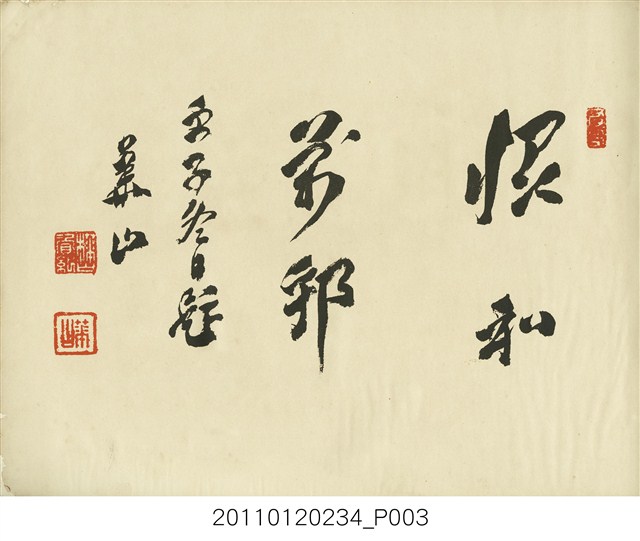 恊和
萬邦
壬子冬日題
華山
20110120234_P003